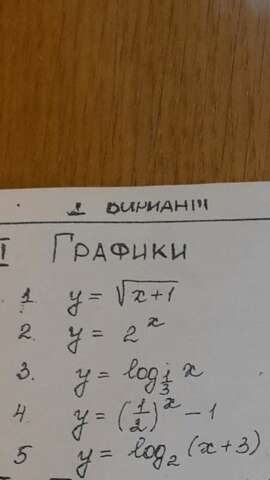 1 ВАРИАНТ
I ГРАФИКИ
1 y = √(x+1)
2. y = 2^x
3. y = log_{1/3} x
4. y = (1/2)^x − 1
5 y = log_2 (x+3)